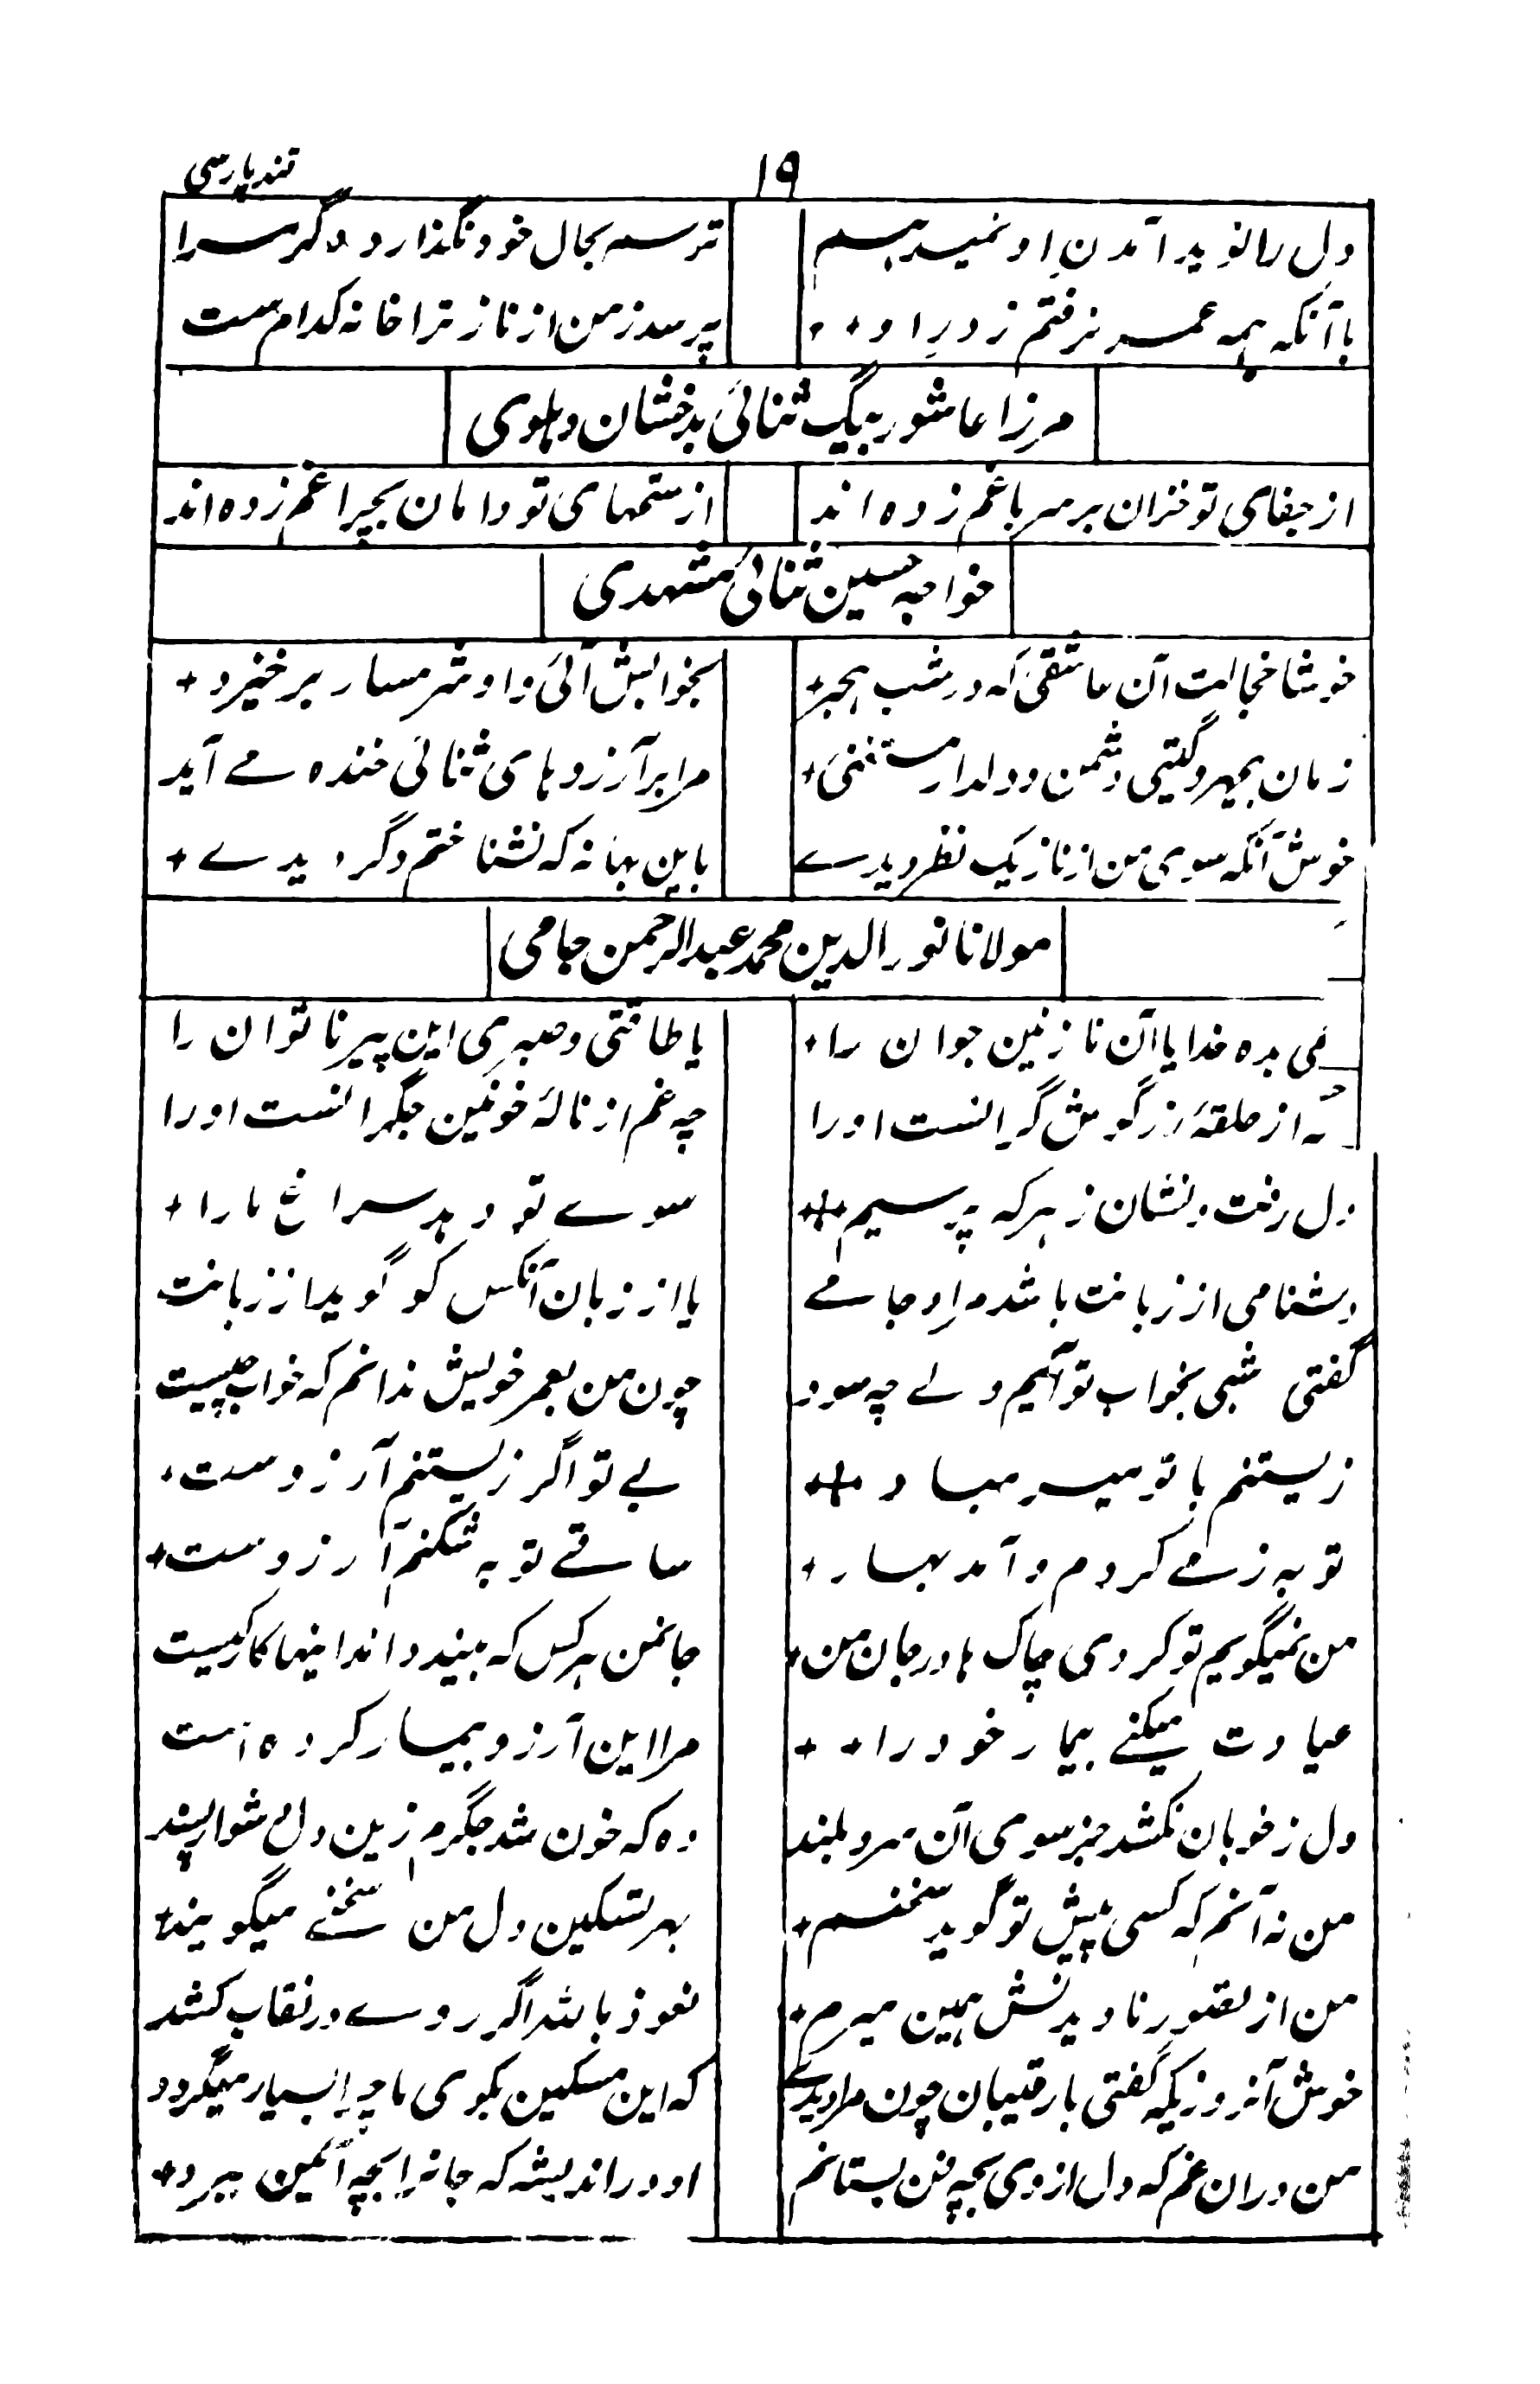 ۱۹
قند پارسی
دل را نوید آمدنِ او نمیدہم
ترسم بحال خود نگذارد دگر مرا
باآنکہ ہمہ عمر نرفتم ز درِ او
پرسد ز من از ناز ترا خانہ کدام ست
مرزا عاشور بیگ ثنائی بدخشان دہلوی
از جفای تو خزان بر سر باغم زدہ اند
از ستمہای تو دامان بچراغم زدہ اند
خواجہ حسین ثنائی مشہدی
خوشا خجالت آن عاشقی کہ در شب ہجر
بخوابش آئی و او شرمسار برخیزد
زمان بیمہر و گیتی دشمن و دلدار مستغنی
مرا بر آرزوہای ثنائی خندہ مے آید
خوش آنکہ سوی من از ناز یک نظر دیدے
باین بہانہ کہ نشناختم دگر دیدے
مولانا نور الدین محمد عبدالرحمن جامی
می بدہ خدایا آن نازنین جوان را
یا طاقتی و صبری این پیر ناتوان را
از حلقۂ زر گوش گرانست او را
چہ غم از نالۂ خونین جگرانست او را
دل رفت و نشان ز ہر کہ پرسیم
سوے تو دہد سراغ ما را
دشنامی از زبانت باشد مراد جامے
یا از زبان آنکس کو گوید از زبانت
گفتی شبی بخواب تو آیم ولے چہ سود
چون من بعمر خویش ندانم کہ خواب چیست
زیستنم با تو میسر مباد
بے تو اگر زیستنم آرزوست
توبہ ز مے کردم و آمد بہار
ساقے توبہ شکنم آرزوست
من نمیگویم تو کردی چاک ہا در جان من
جانمن ہر کس کہ بیند داند اینہا کار کیست
عیادت میکنے بیمار خود را
مرا این آرزو بیمار کردہ است
دل ز خوبان نکشد جز سوی آن سرو بلند
وہ کہ خون شد جگرم زین دل دشوار پسند
من نہ آنم کہ کسی پیش تو گوید سخنم
بہر تسکین دل من سخنے میگویند
من از تصور نادیدنش ہمین میرم
نعوذ باللہ اگر روے در نقاب کشد
خوش آنروزیکہ گفتی با رقیبان چون مرا دیدے
کہ این مسکین بکوی ما چرا بسیار میگردد
من دران غم کہ دل از وی بچہ فن بستانم
او در اندیشہ کہ جانرا بچہ آئین ببرد